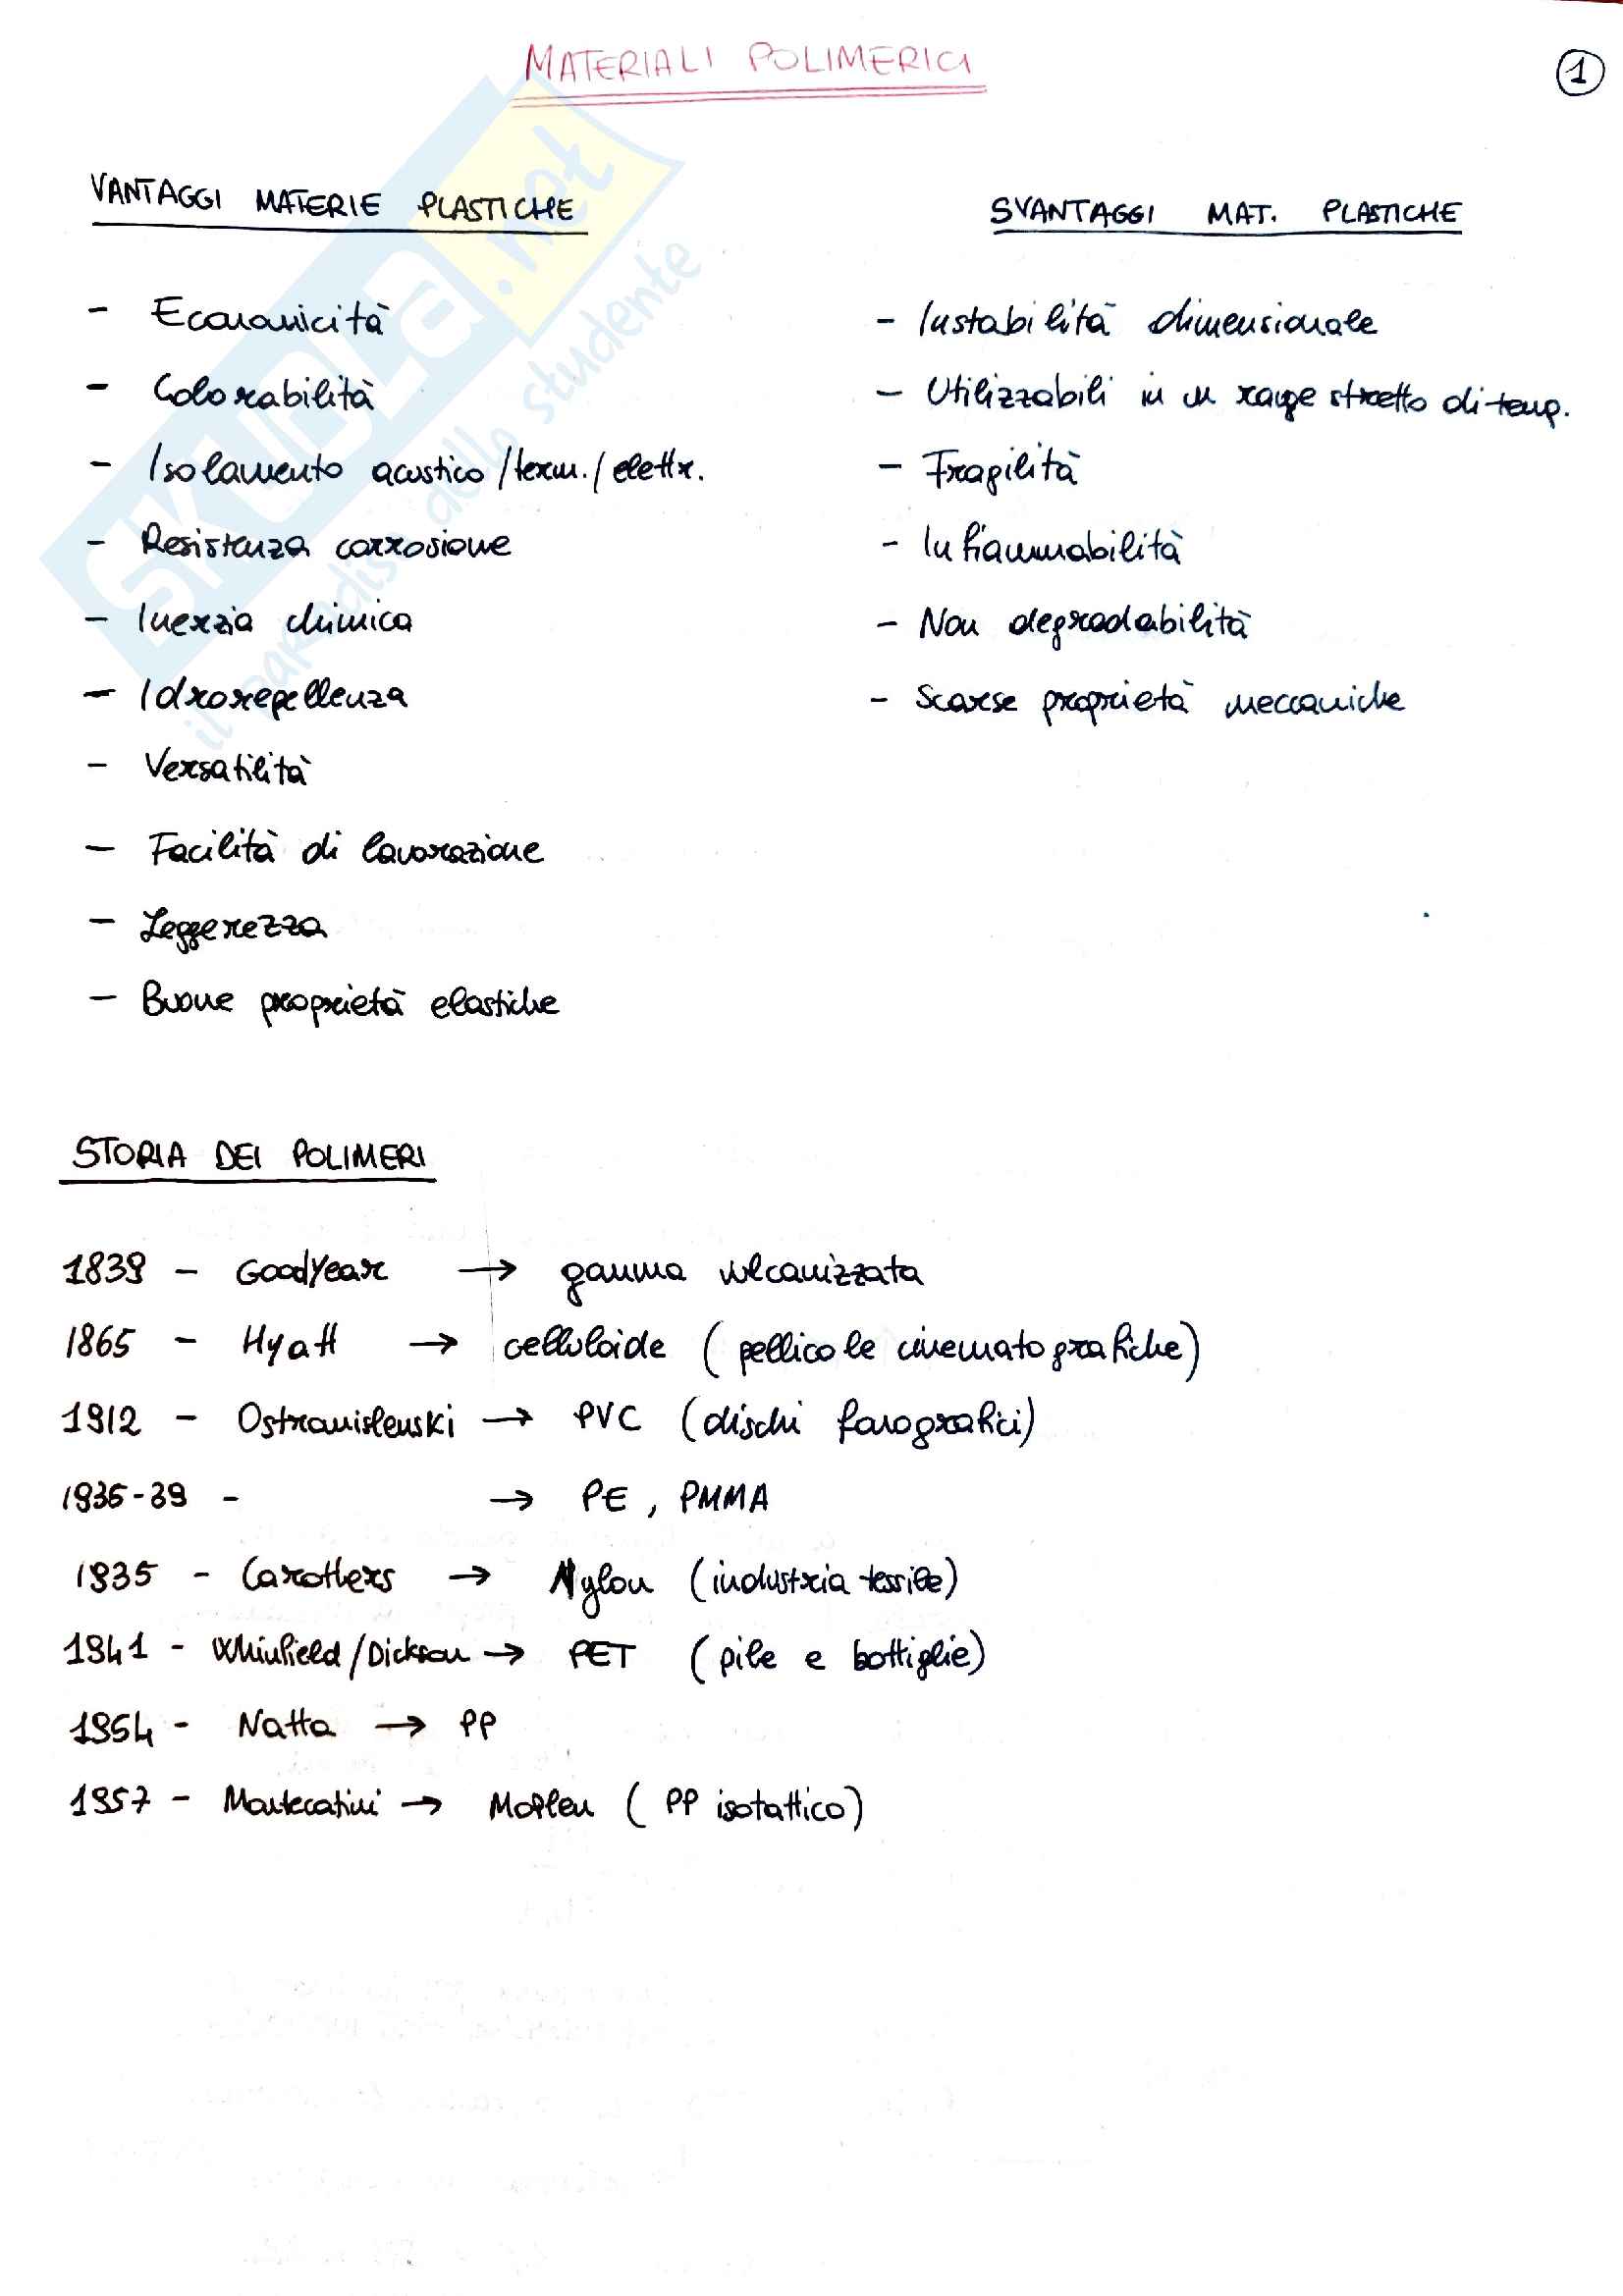 MATERIALI POLIMERICI
1
VANTAGGI MATERIE PLASTICHE
- Economicità
- Colorabilità
- Isolamento acustico/term./elettr.
- Resistenza corrosione
- Inerzia chimica
- Idrorepellenza
- Versatilità
- Facilità di lavorazione
- Leggerezza
- Buone proprietà elastiche
SVANTAGGI MAT. PLASTICHE
- Instabilità dimensionale
- Utilizzabili in un range stretto di temp.
- Fragilità
- Infiammabilità
- Non degradabilità
- Scarse proprietà meccaniche
STORIA DEI POLIMERI
1839 - GoodYear → gamma vulcanizzata
1865 - Hyatt → celluloide (pellicole cinematografiche)
1912 - Ostromislenski → PVC (dischi fonografici)
1936-39 - → PE, PMMA
1935 - Carothers → Nylon (industria tessile)
1941 - Whinfield/Dickson → PET (pile e bottiglie)
1954 - Natta → PP
1957 - Montecatini → Moplen (PP isotattico)
SKUOLA.net
il paradiso dello studente